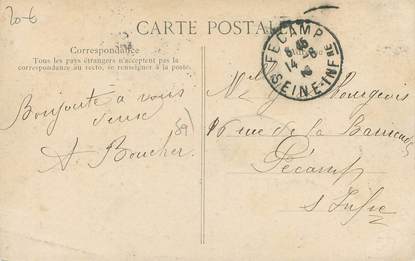 20-6
CARTE POSTALE
Correspondance
Tous les pays étrangers n'acceptent pas la
correspondance au recto, se renseigner à la poste.
FECAMP
14-8
SEINE-INFRE
Bourgeois
Bonjour à vous
deux
A. Boucher
89
16 rue de la
Fécamp
s Infre